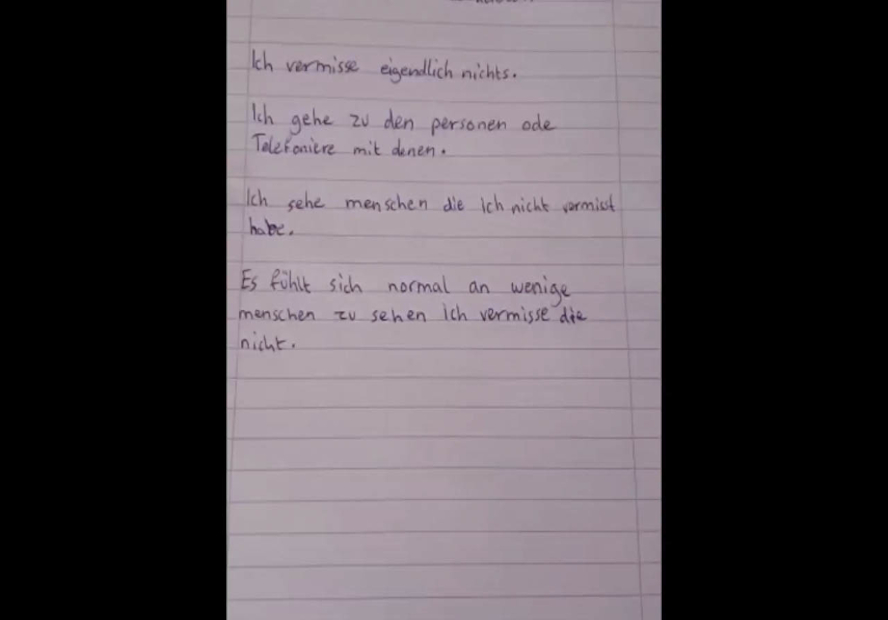 Ich vermisse eigendlich nichts.
Ich gehe zu den personen ode
Telefoniere mit denen.
Ich sehe menschen die ich nicht vermisst
habe.
Es fühlt sich normal an wenige
menschen zu sehen ich vermisse die
nicht.